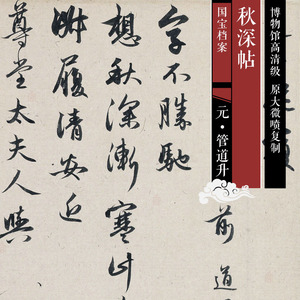 博物馆高清级 原大微喷复制
秋深帖
国宝档案
元·管道升
前道
字不勝馳
想秋深漸寒計
履清安近
尊堂太夫人與